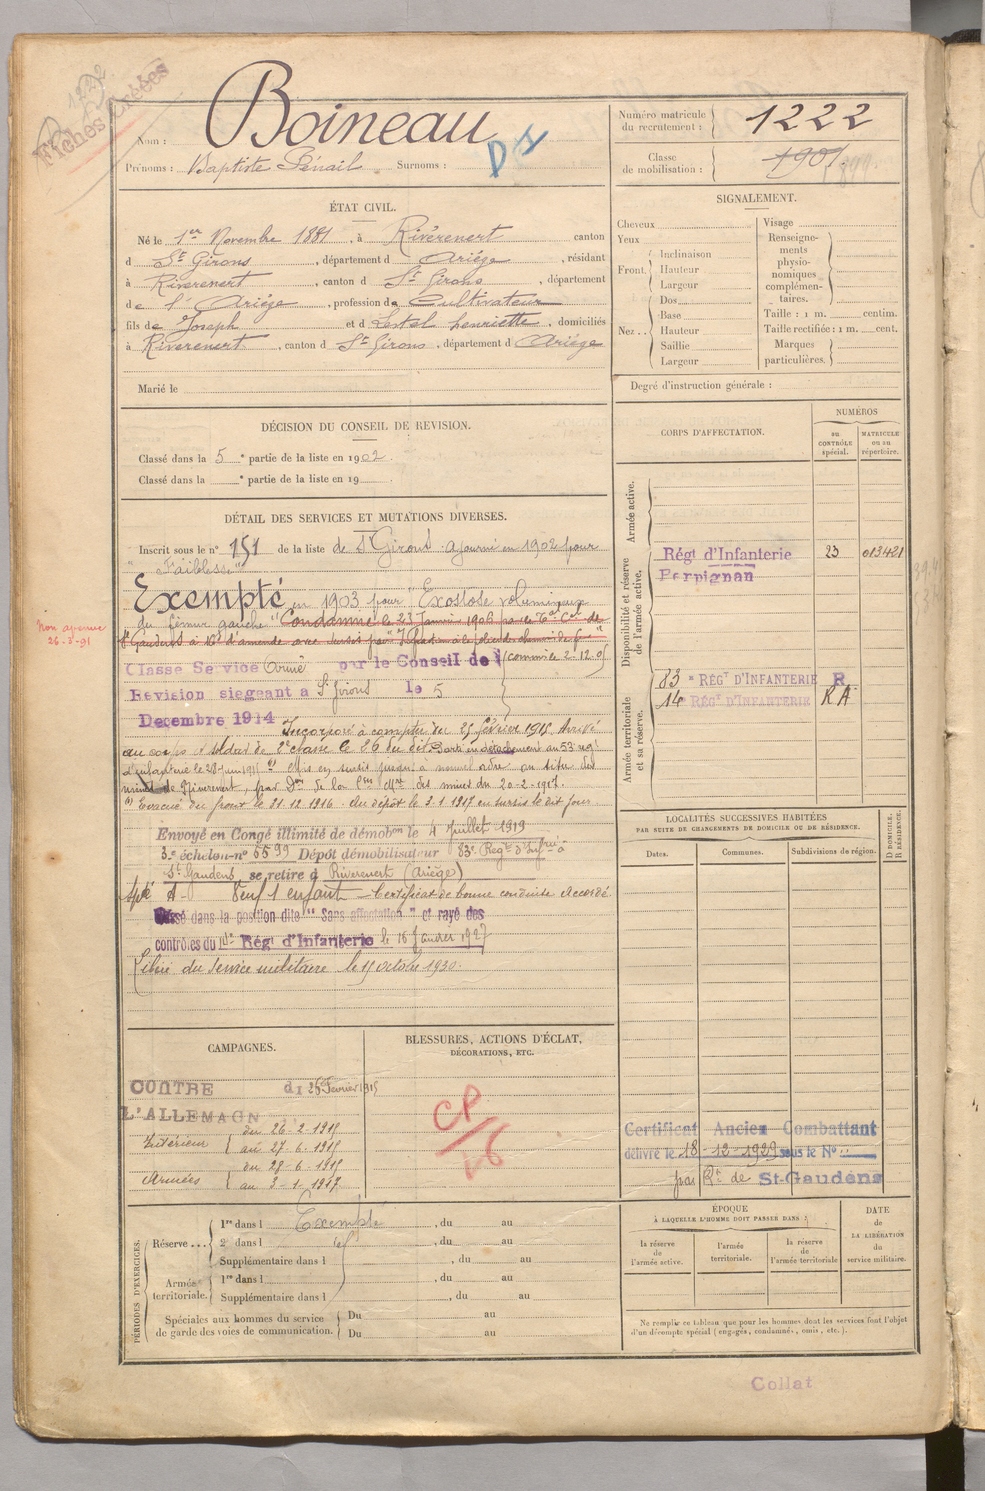 Fiches Créées
Nom : Boineau
Prénoms : Baptiste Surnoms :
Numéro matricule du recrutement : 1222
Classe de mobilisation : 1901
ÉTAT CIVIL.
Né le 1er Novembre 1881, à Rivèrenert canton
d St Girons, département d Ariège, résidant
à Rivèrenert, canton d St Girons, département
de l'Ariège, profession de Cultivateur
fils de Joseph et d Lestel henriette, domiciliés
à Rivèrenert, canton d St Girons, département d Ariège
Marié le
DÉCISION DU CONSEIL DE REVISION.
Classé dans la 5e partie de la liste en 1902.
Classé dans la e partie de la liste en 19
DÉTAIL DES SERVICES ET MUTATIONS DIVERSES.
Inscrit sous le n° 151 de la liste de St Girons ajourné en 1902 pour
"Faiblesse"
Exempté en 1903 pour "Exostose volumineuse
du fémur gauche" Condamné le 23 Janvier 1906 par le
St Gaudens à 16f d'amende avec sursis pour
Non avenue
26-3-91
Classé Service Armé par le Conseil de
Revision siegeant a St Girons le 5
Decembre 1914
Incorporé à compter du 25 février 1915 Arrivé
au corps et soldat de 2e classe le 26 du dit. Parti en détachement au 53 rég
d'infanterie le 28 Juin 1915 (1) Mis en sursis jusqu'à nouvel ordre au titre des
mines de Rivèrenert, par Don de la des mines du 20-2-1917.
(1) Evacué du front le 31.12.1916. du dépôt le 3.1.1917 en sursis le dit jour
Envoyé en Congé illimité de démobon le 4 Juillet 1919
3e échelon n° 5599 Dépôt démobilisateur 83e Regt d'Infrie à
St Gaudens se retire à Rivèrenert (Ariège)
A - Veuf 1 enfant - Certificat de bonne conduite Accordé
Passé dans la position dite "Sans affectation" et rayé des
contrôles du 14e Régt d'Infanterie le 16 Janvier 1927
Libéré du service militaire le 15 octobre 1930.
SIGNALEMENT.
Cheveux
Yeux
Front. Inclinaison
Hauteur
Largeur
Nez .. Dos
Base
Hauteur
Saillie
Largeur
Visage
Renseignements physionomiques complémentaires.
Taille : 1 m. centim.
Taille rectifiée : 1 m. cent.
Marques particulières.
Degré d'instruction générale :
CORPS D'AFFECTATION.
NUMÉROS
au CONTRÔLE spécial.
MATRICULE ou au répertoire.
Armée active.
Disponibilité et réserve de l'armée active.
Régt d'Infanterie 23 013421
Perpignan
Armée territoriale et sa réserve.
83e RÉGT D'INFANTERIE R
14e RÉGT D'INFANTERIE RA
LOCALITÉS SUCCESSIVES HABITÉES
PAR SUITE DE CHANGEMENTS DE DOMICILE OU DE RÉSIDENCE.
D DOMICILE. R RÉSIDENCE.
Dates. Communes. Subdivisions de région.
Certificat Ancien Combattant
délivré le 18-12-1929 sous le N°
par Rt de St-Gaudens
CAMPAGNES.
CONTRE du 25 Février 1915
L'ALLEMAGN
Intérieur du 26-2-1915
au 27-6-1915
Armées du 28-6-1915
au 3-1-1917
BLESSURES, ACTIONS D'ÉCLAT,
DÉCORATIONS, ETC.
PÉRIODES D'EXERCICES.
Réserve ... 1re dans l Exempté, du au
2e dans l, du au
Supplémentaire dans l, du au
Armée territoriale. 1re dans l, du au
Supplémentaire dans l, du au
Spéciales aux hommes du service Du au
de garde des voies de communication. Du au
ÉPOQUE
À LAQUELLE L'HOMME DOIT PASSER DANS :
la réserve de l'armée active.
l'armée territoriale.
la réserve de l'armée territoriale
DATE de LA LIBÉRATION du service militaire.
Ne remplir ce tableau que pour les hommes dont les services font l'objet
d'un décompte spécial (engagés, condamnés, omis, etc.).
Collat